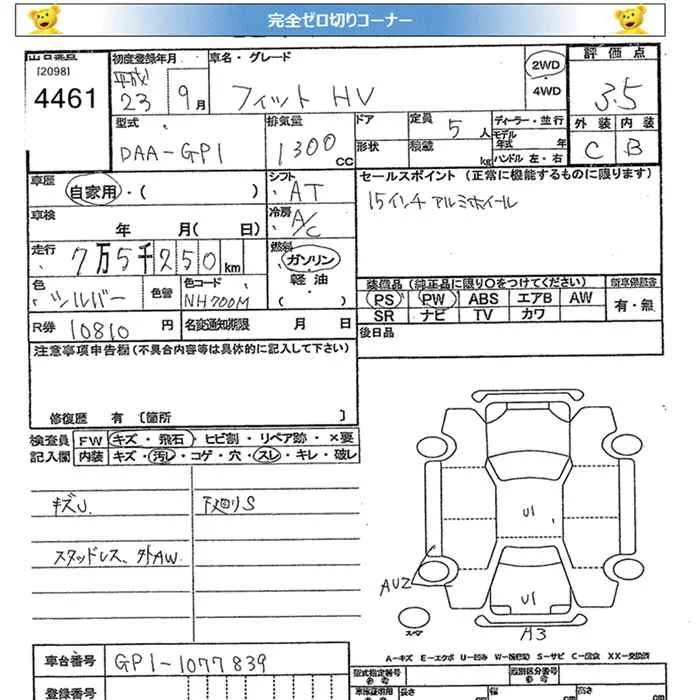 完全ゼロ切りコーナー
[2098]
4461
初度登録年月
平成
23 9月
車名・グレード
フィット HV
2WD
4WD
評価点
3.5
外装 内装
C B
型式
DAA-GP1
排気量
1300 CC
ドア
形状
定員 5人
積載 kg
ディーラー・並行
モデル年式 年
ハンドル 左・右
車歴
自家用・( )
シフト
AT
セールスポイント (正常に機能するものに限ります)
15インチ アルミホイール
車検 年 月( 日)
冷房
A/C
走行 7万5千250km
燃料
ガソリン
軽油
( )
色
シルバー
色替
色コード
NH700M
装備品 (純正品に限り○をつけてください)
PS PW ABS エアB AW
SR ナビ TV カワ
新車保証書
有・無
R券 10810円
名変通知期限 月 日
後日品
注意事項申告欄(不具合内容等は具体的に記入して下さい)
修復歴 有 〔箇所 〕
検査員記入欄
FW キズ・飛石・ヒビ割・リペア跡・×要
内装 キズ・汚レ・コゲ・穴・スレ・キレ・破レ
キズU. 下廻りS
スタッドレス、外AW
U1
AU2
U1
スペア
A3
A-キズ E-エクボ U-凹み W-補修跡 S-サビ C-腐食 XX-交換済
車台番号 GP1-1077839
登録番号
型式指定番号
参考
類別区分番号
車検証車両
参考
長さ 幅 高さ